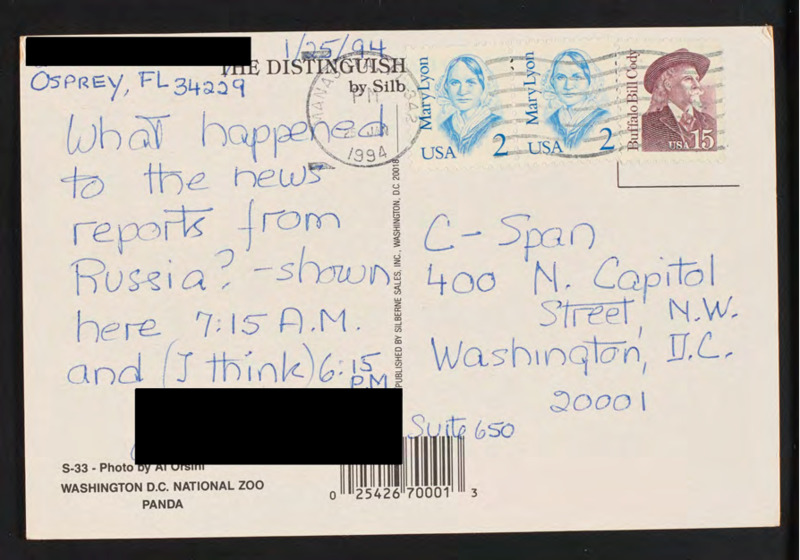 1/25/94
OSPREY, FL 34229
THE DISTINGUISH
by Silb
What happened
to the news
reports from
Russia? -shown
here 7:15 A.M.
and (I think) 6:15
P.M
PM
1994
Mary Lyon
USA 2
Mary Lyon
USA 2
Buffalo Bill Cody
USA 15
PUBLISHED BY SILBERNE SALES, INC., WASHINGTON, D.C. 20018
C-Span
400 N. Capitol
Street, N.W.
Washington, D.C.
20001
Suite 650
S-33 - Photo by Al Orsini
WASHINGTON D.C. NATIONAL ZOO
PANDA
0 25426 70001 3